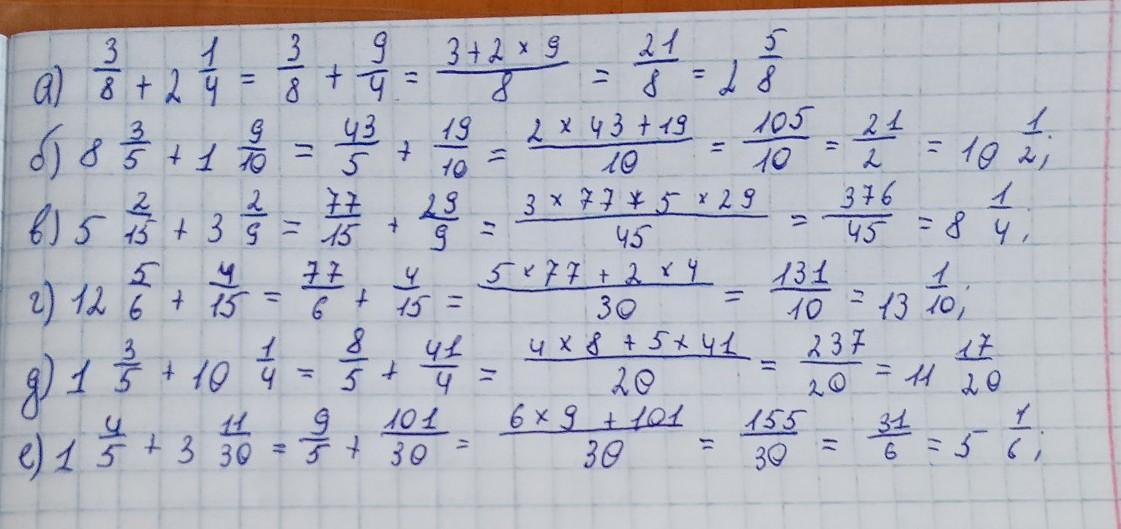 а) 3/8 + 2 1/4 = 3/8 + 9/4 = (3 + 2 × 9)/8 = 21/8 = 2 5/8
б) 8 3/5 + 1 9/10 = 43/5 + 19/10 = (2 × 43 + 19)/10 = 105/10 = 21/2 = 10 1/2;
в) 5 2/15 + 3 2/9 = 77/15 + 29/9 = (3 × 77 + 5 × 29)/45 = 376/45 = 8 1/4;
г) 12 5/6 + 4/15 = 77/6 + 4/15 = (5 × 77 + 2 × 4)/30 = 131/10 = 13 1/10;
д) 1 3/5 + 10 1/4 = 8/5 + 41/4 = (4 × 8 + 5 × 41)/20 = 237/20 = 11 17/20
е) 1 4/5 + 3 11/30 = 9/5 + 101/30 = (6 × 9 + 101)/30 = 155/30 = 31/6 = 5 1/6;